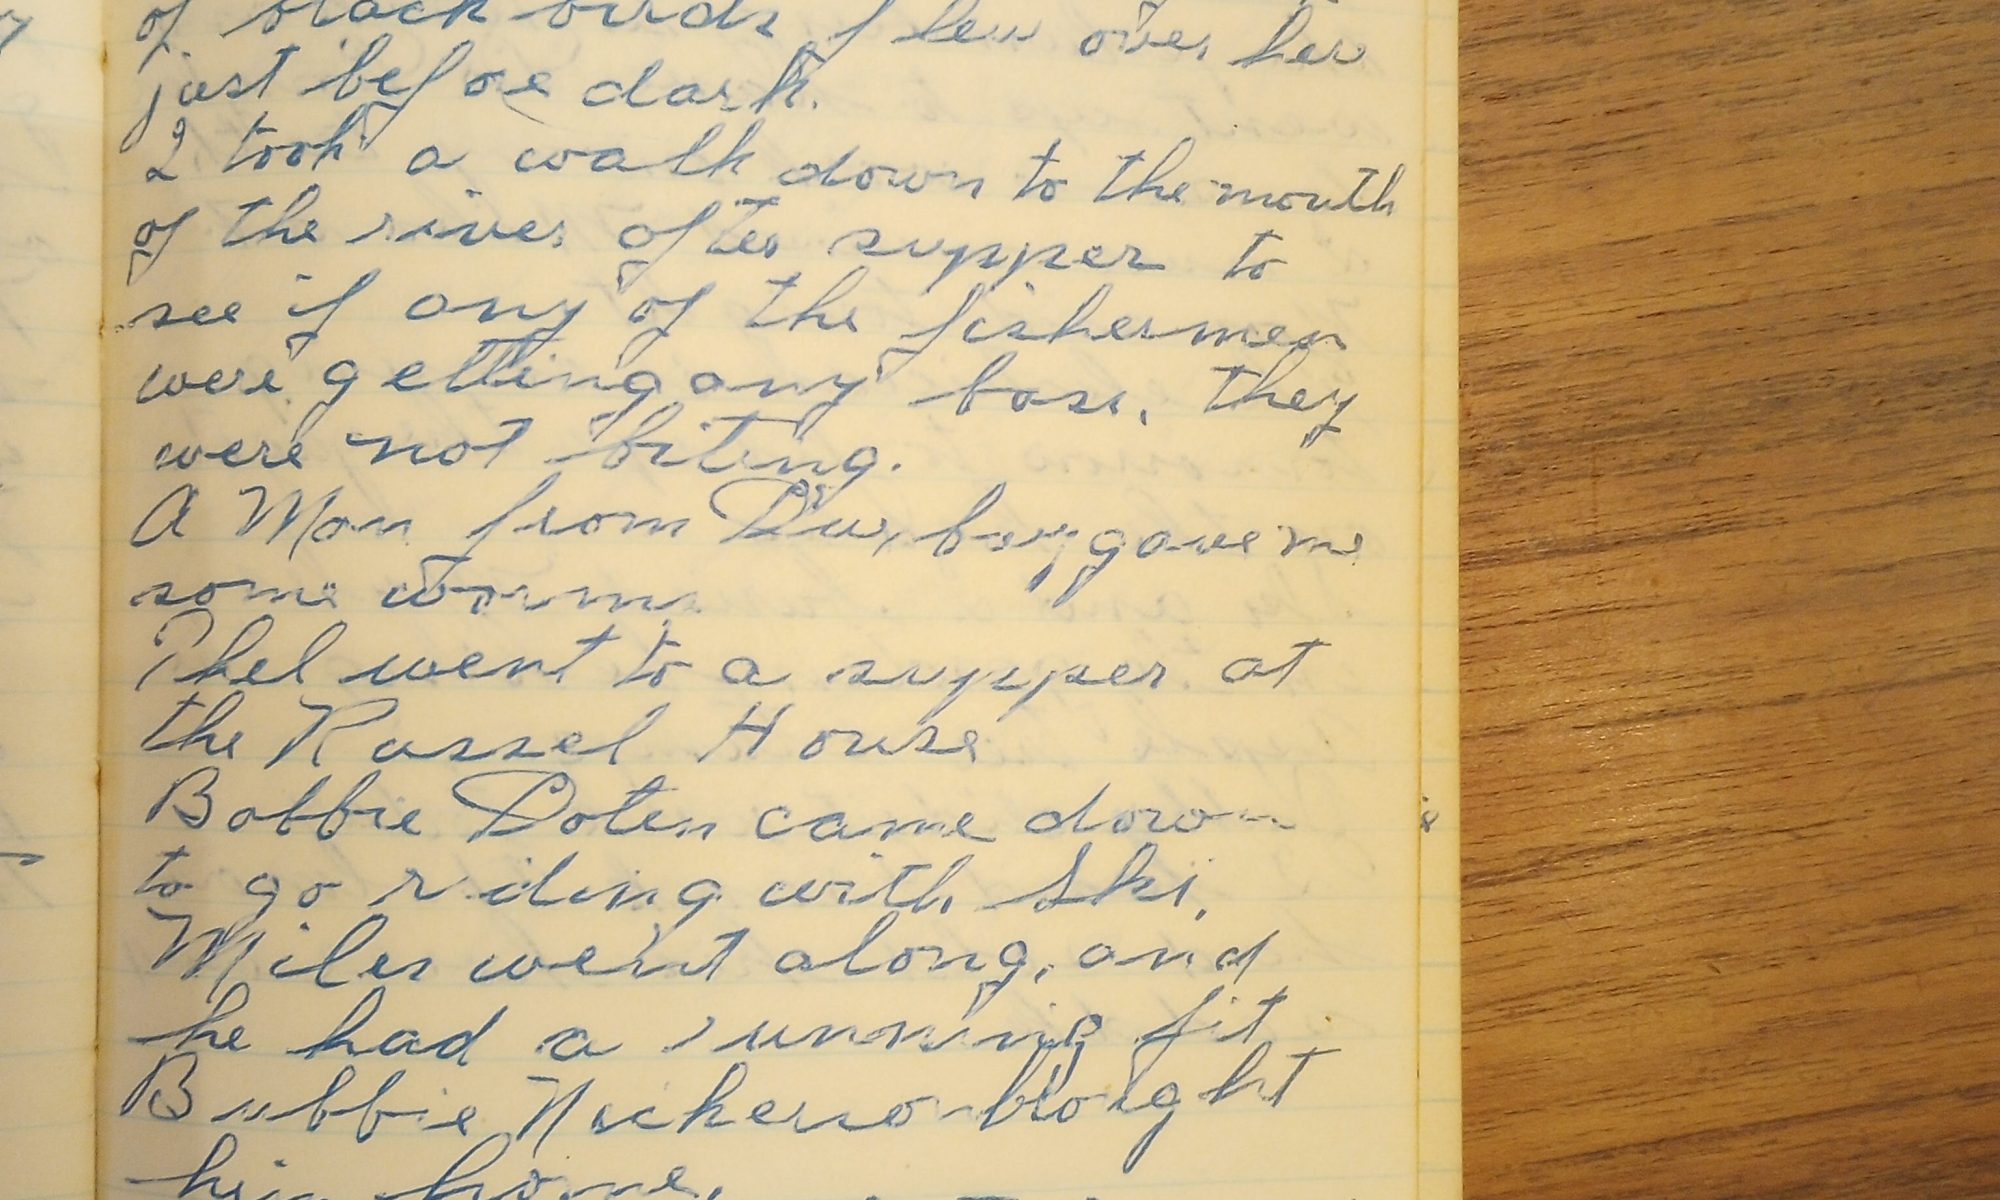 of black birds flew over her
just before dark.
I took a walk down to the mouth
of the river after supper to
see if any of the fishermen
were getting any bass, they
were not biting.
A Man from gave me
some worms
Phel went to a supper at
the Russel House
Bobbie Doten came down
to go riding with Ski.
Miles went along, and
he had a running fit
Bubbie Nickerson brought
him home.